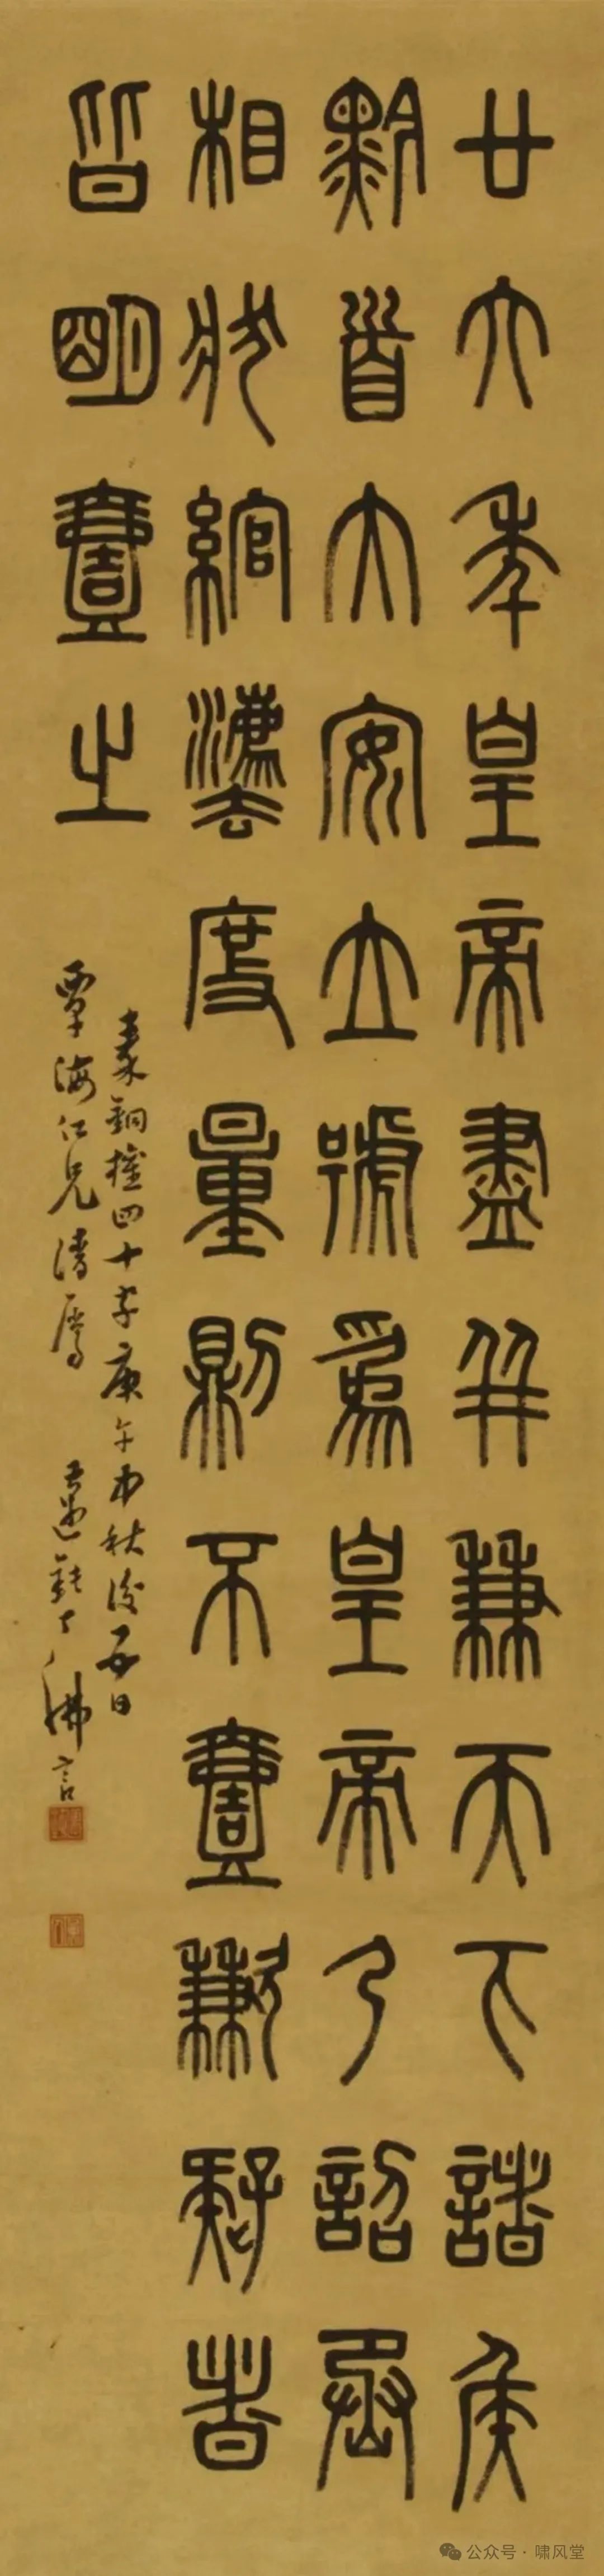 廿六年皇帝盡并兼天下諸侯
黔首大安立號爲皇帝乃詔丞
相狀綰灋度量則不壹歉疑者
皆明壹之
秦銅權四十字庚午中秋後五日
覃海仁兄清屬 邁鈍丁佛言
公众号·啸风堂